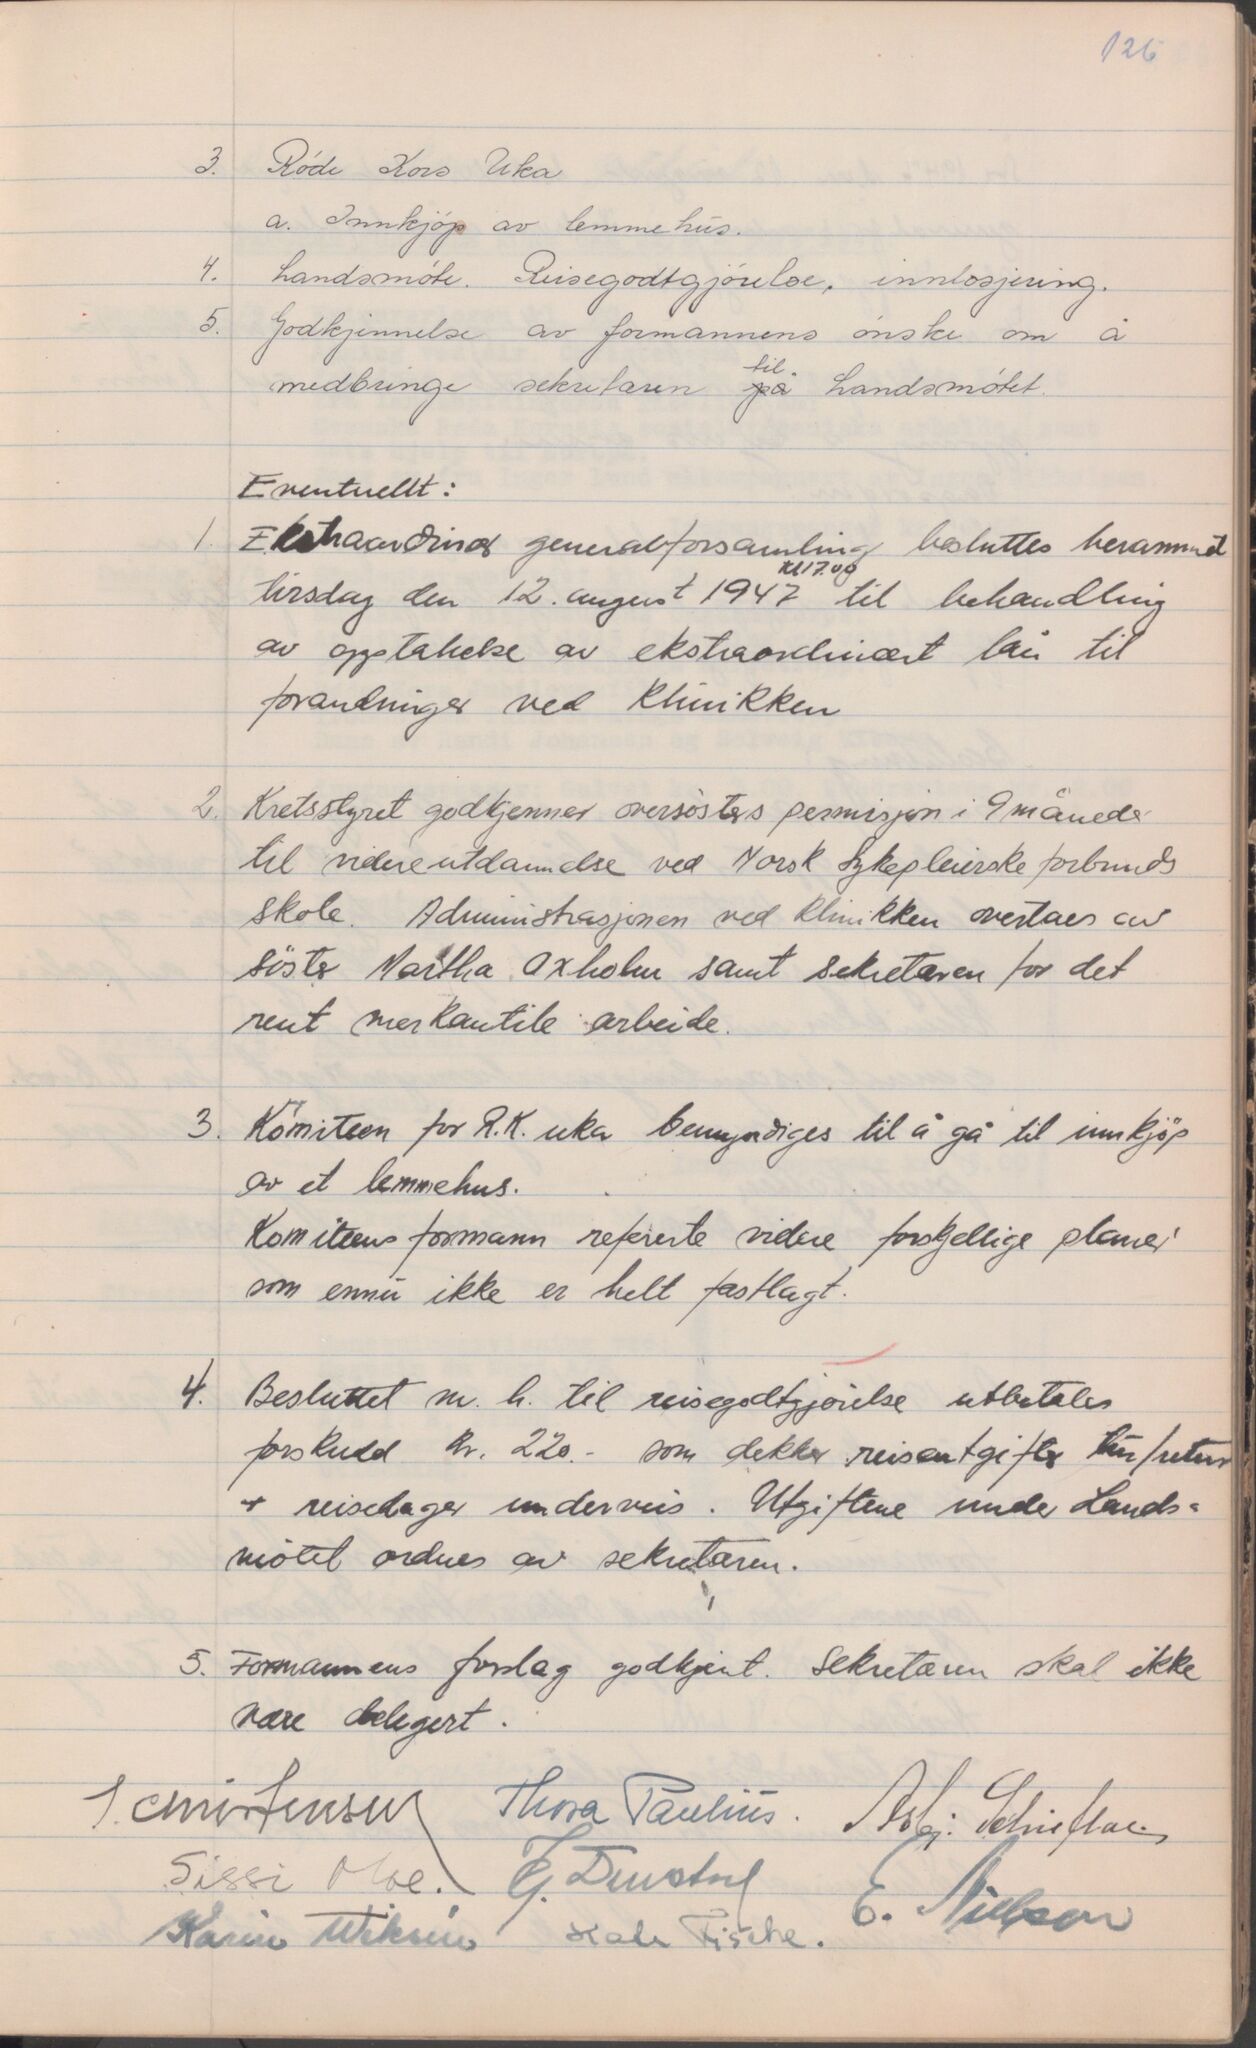 126
3. Röde Kors Uka
a. Innkjöp av lemmehus.
4. Landsmöte. Reisegodtgjörelse, innlosjering.
5. Godkjennelse av formannens önske om å
medbringe sekretæren på til Landsmötet.
Eventuellt:
1. Ekstraordinær generalforsamling besluttes berammet
tirsdag den 12. august 1947 kl 17.00 til behandling
av opptakelse av ekstraordinært lån til
forandringer ved Klinikken
2. Kretsstyret godkjenner oversösters permisjon i 9 måneder
til videreutdannelse ved Norsk Sykepleierske forbunds
skole. Administrasjonen ved Klinikken overtaes av
söster Martha Axholm samt sekretæren for det
rent merkantile arbeide.
3. Komiteen for R.K. uka bemyndiges til å gå til innkjöp
av et lemmehus.
Komiteens formann refererte videre forskjellige planer
som ennu ikke er helt fastlagt.
4. Besluttet m. h. til reisegodtgjörelse utbetales
forskudd kr. 220.- som dekker reiseutgifter tur/retur
+ reisedager underveis. Utgiftene under Lands-
mötet ordnes av sekretæren.
5. Formannens forslag godkjent. Sekretæren skal ikke
være delegert.
J. Christensen Thora Paulius. Asbj.
Sissi Moe. E. Nielsen
Karin